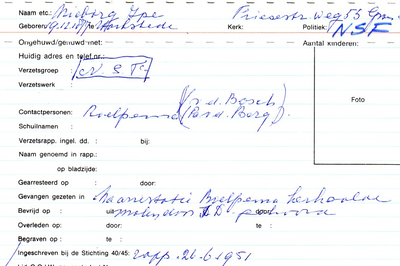 Naam etc.: Nieborg Ype Friesestr.weg 53 Grn.
Geboren: 19.12. te Harkstede Kerk: Politiek: NSF
Ongehuwd/gehuwd met: Aantal kinderen:
Huidig adres en telef.nr.:
Verzetsgroep : N.S.F.
Verzetswerk :
Foto
(v.d. Bosch)
Contactpersonen: Roelfsema (v.d. Berg).
Schuilnaam :
Verzetsrapp. ingel. dd. : bij:
Naam genoemd in rapp.:
op bladzijde:
Gearresteerd op : door:
Gevangen gezeten in Na arrestatie Roelfsema herhaalde
Bevrijd op : uit door: malen door S.D. gezocht
Overleden op: door: te :
Begraven op : te :
Ingeschreven bij de Stichting 40/45: rapp. 21-6-1951